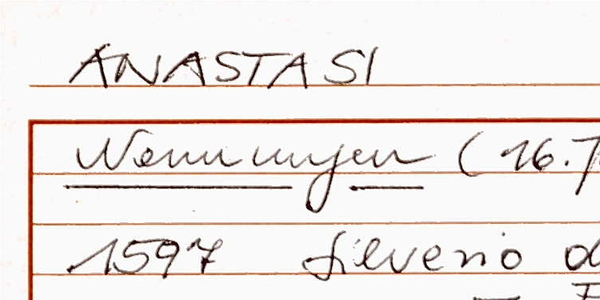 ANASTASI
Nennungen (16.
1597 Silverio d